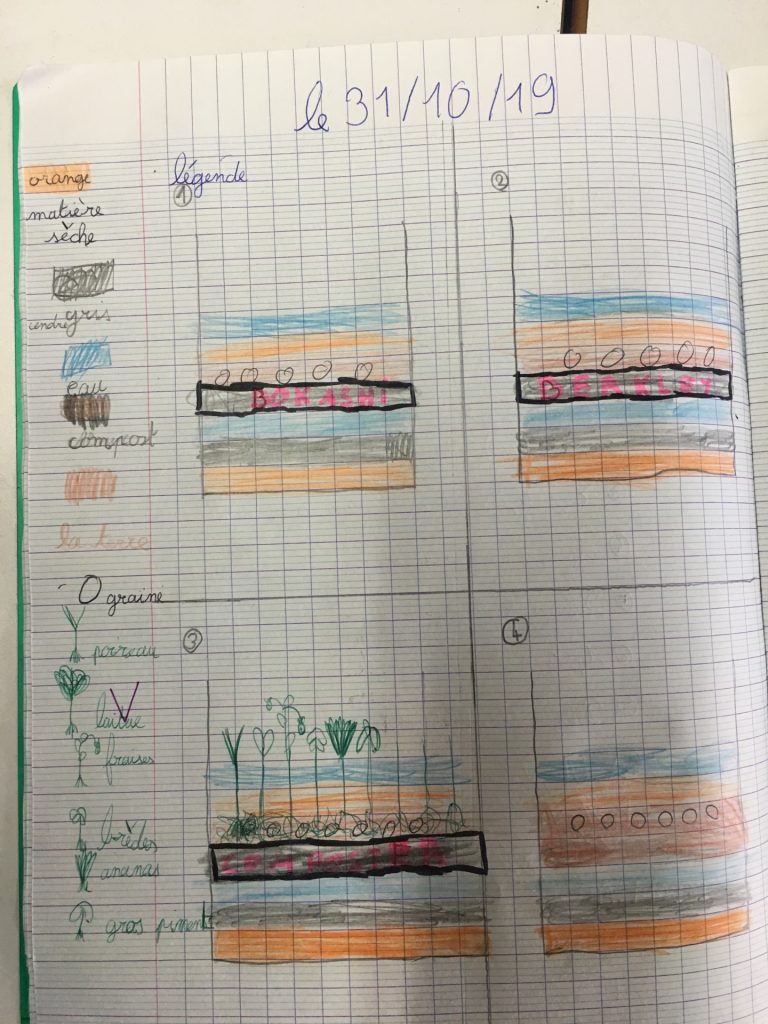 le 31/10/19
orange
légende
①
②
matière
sèche
gris
cendre
eau
compost
la terre
BOKASHI
BEAKLEY
O graine
③
④
poireau
laitue
fraises
brèdes
ananas
gros piment
COMPOSTER